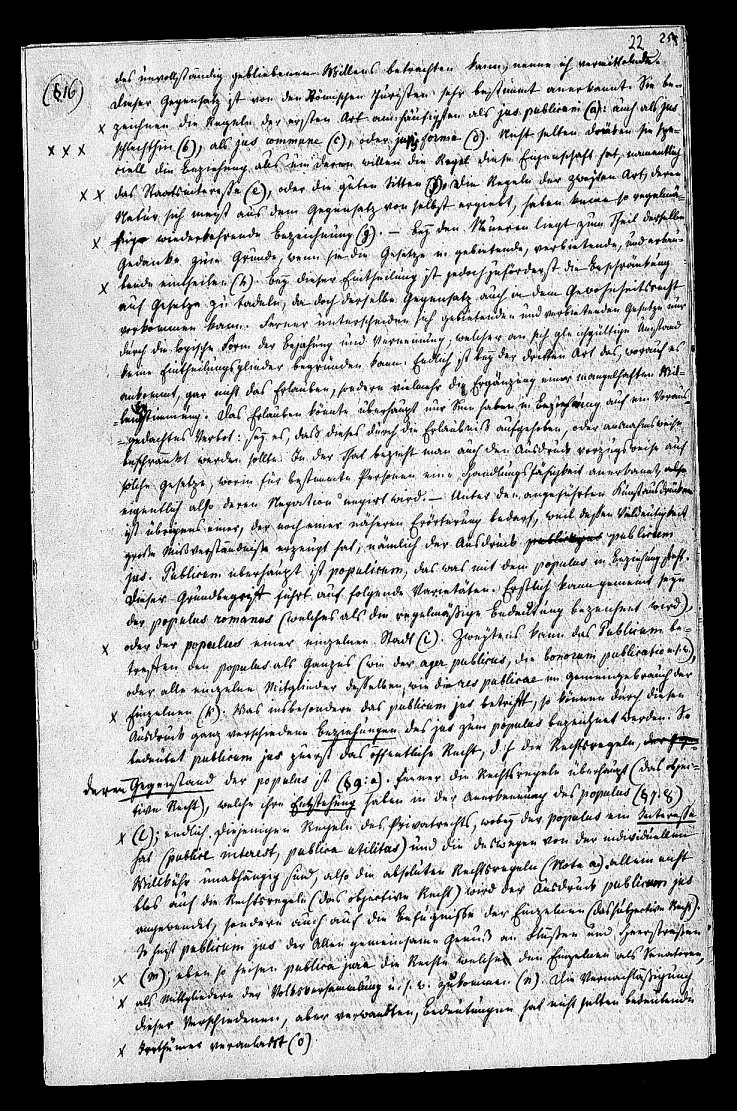 22 25
(§16)
des unvollständig gebliebenen Willens betrachten kann, nenne ich vermittelnde.
Dieser Gegensatz ist von den Römischen Juristen sehr bestimmt anerkannt. Sie be-
x zeichnen die Regeln der ersten Art am häufigsten als jus publicum (a): auch als jus
x x x schlechthin (b), als jus commune (c), oder juris forma (d). Nicht selten drücken sie spe-
ciell die Beziehung aus um deren willen die Regel diese Eigenschaft hat, namentlich
x x das Staatsinteresse (e), oder die guten Sitten (f). Die Regeln der zweyten Art, deren
Natur sich meist aus dem Gegensatz von selbst ergiebt, haben keine so regelmä-
x ßige wiederkehrende Bezeichnung (g). — Bey den Neueren liegt zum Theil derselbe
Gedanke zum Grunde, wenn sie die Gesetze in gebietende, verbietende, und erlau-
x bende eintheilen (h). Bey dieser Eintheilung ist jedoch zuförderst die Beschränkung
auf Gesetze zu tadeln, da doch derselbe Gegensatz auch in dem Gewohnheitsrecht
vorkommen kann. Ferner unterscheiden sich gebietenden und verbietenden Gesetze nur
durch die logische Form der Bejahung und Verneinung, welcher an sich gleichgültige Umstand
keine Eintheilungsglieder begründen kann. Endlich ist bey der dritten Art das, worauf es
ankommt, gar nicht das Erlauben, sondern vielmehr die Ergänzung einer mangelhaften Wil-
lensbestimmung. Das Erlauben könnte überhaupt nur Sinn haben in Beziehung auf ein Voraus-
gedachtes Verbot: sey es, daß dieses durch die Erlaubniß aufgehoben, oder ausnahmsweise
beschränkt werden sollte. In der That bezieht man auch den Ausdruck vorzugsweise auf
solche Gesetze, worin für bestimmte Personen eine Handlungsfähigkeit anerkannt,
eigentlich also deren Negation negirt wird. — Unter den angeführten Kunstausdrücken
ist übrigens einer, der noch einer näheren Erörterung bedarf, weil dessen Vieldeutigkeit
große Misverständnisse erzeugt hat, nämlich der Ausdruck publicum
jus. Publicum überhaupt ist populicum, das was mit dem populus in Beziehung steht.
Dieser Grundbegriff führt auf folgende Varietäten. Erstlich kann gemeint seyn
der populus romanus (welches als die regelmäßige Bedeutung bezeichnet wird),
x oder der populus einer einzelnen Stadt (i). Zweytens kann das Publicum be-
treffen den populus als Ganzes (wie der ager publicus, die bonorum publicatio u.s.w),
oder alle einzelne Mitglieder desselben, wie die res publicae im Gemeingebrauch der
x Einzelnen (k). Was insbesondere das publicum jus betrifft, so können durch diesen
Ausdruck ganz verschiedene Beziehungen des jus zum populus bezeichnet werden. So
bedeutet publicum jus zuerst das öffentliche Recht, d. h. die Rechtsregeln,
deren Gegenstand der populus ist (§9. a). Ferner die Rechtsregeln überhaupt (das objec-
tive Recht), welche ihre Entstehung haben in der Anerkennung des populus (§7. 8)
x (l); endlich diejenigen Regeln des Privatrechts, wobey der populus ein Interesse
hat (publice interest, publica utilitas) und die deswegen von der individuellen
Willkühr unabhängig sind, also die absoluten Rechtsregeln (Note a). Allein nicht
blos auf die Rechtsregeln (das objective Recht) wird der Ausdruck publicum jus
angewendet, sondern auch auf die Befugnisse der Einzelnen (das subjective Recht).
So heißt publicum jus der Allen gemeinsame Genuß an Flüssen und Heerstraßen
x (m); eben so heißen publica jura die Rechte welche den Einzelnen als Senatoren,
x als Mitgliedern der Volksversammlung u. s. w. zukommen (n). Die Vernachlässigung
dieser verschiedenen, aber verwandten, Bedeutungen hat nicht selten bedeutende
x Irrthümer veranlaßt (o)